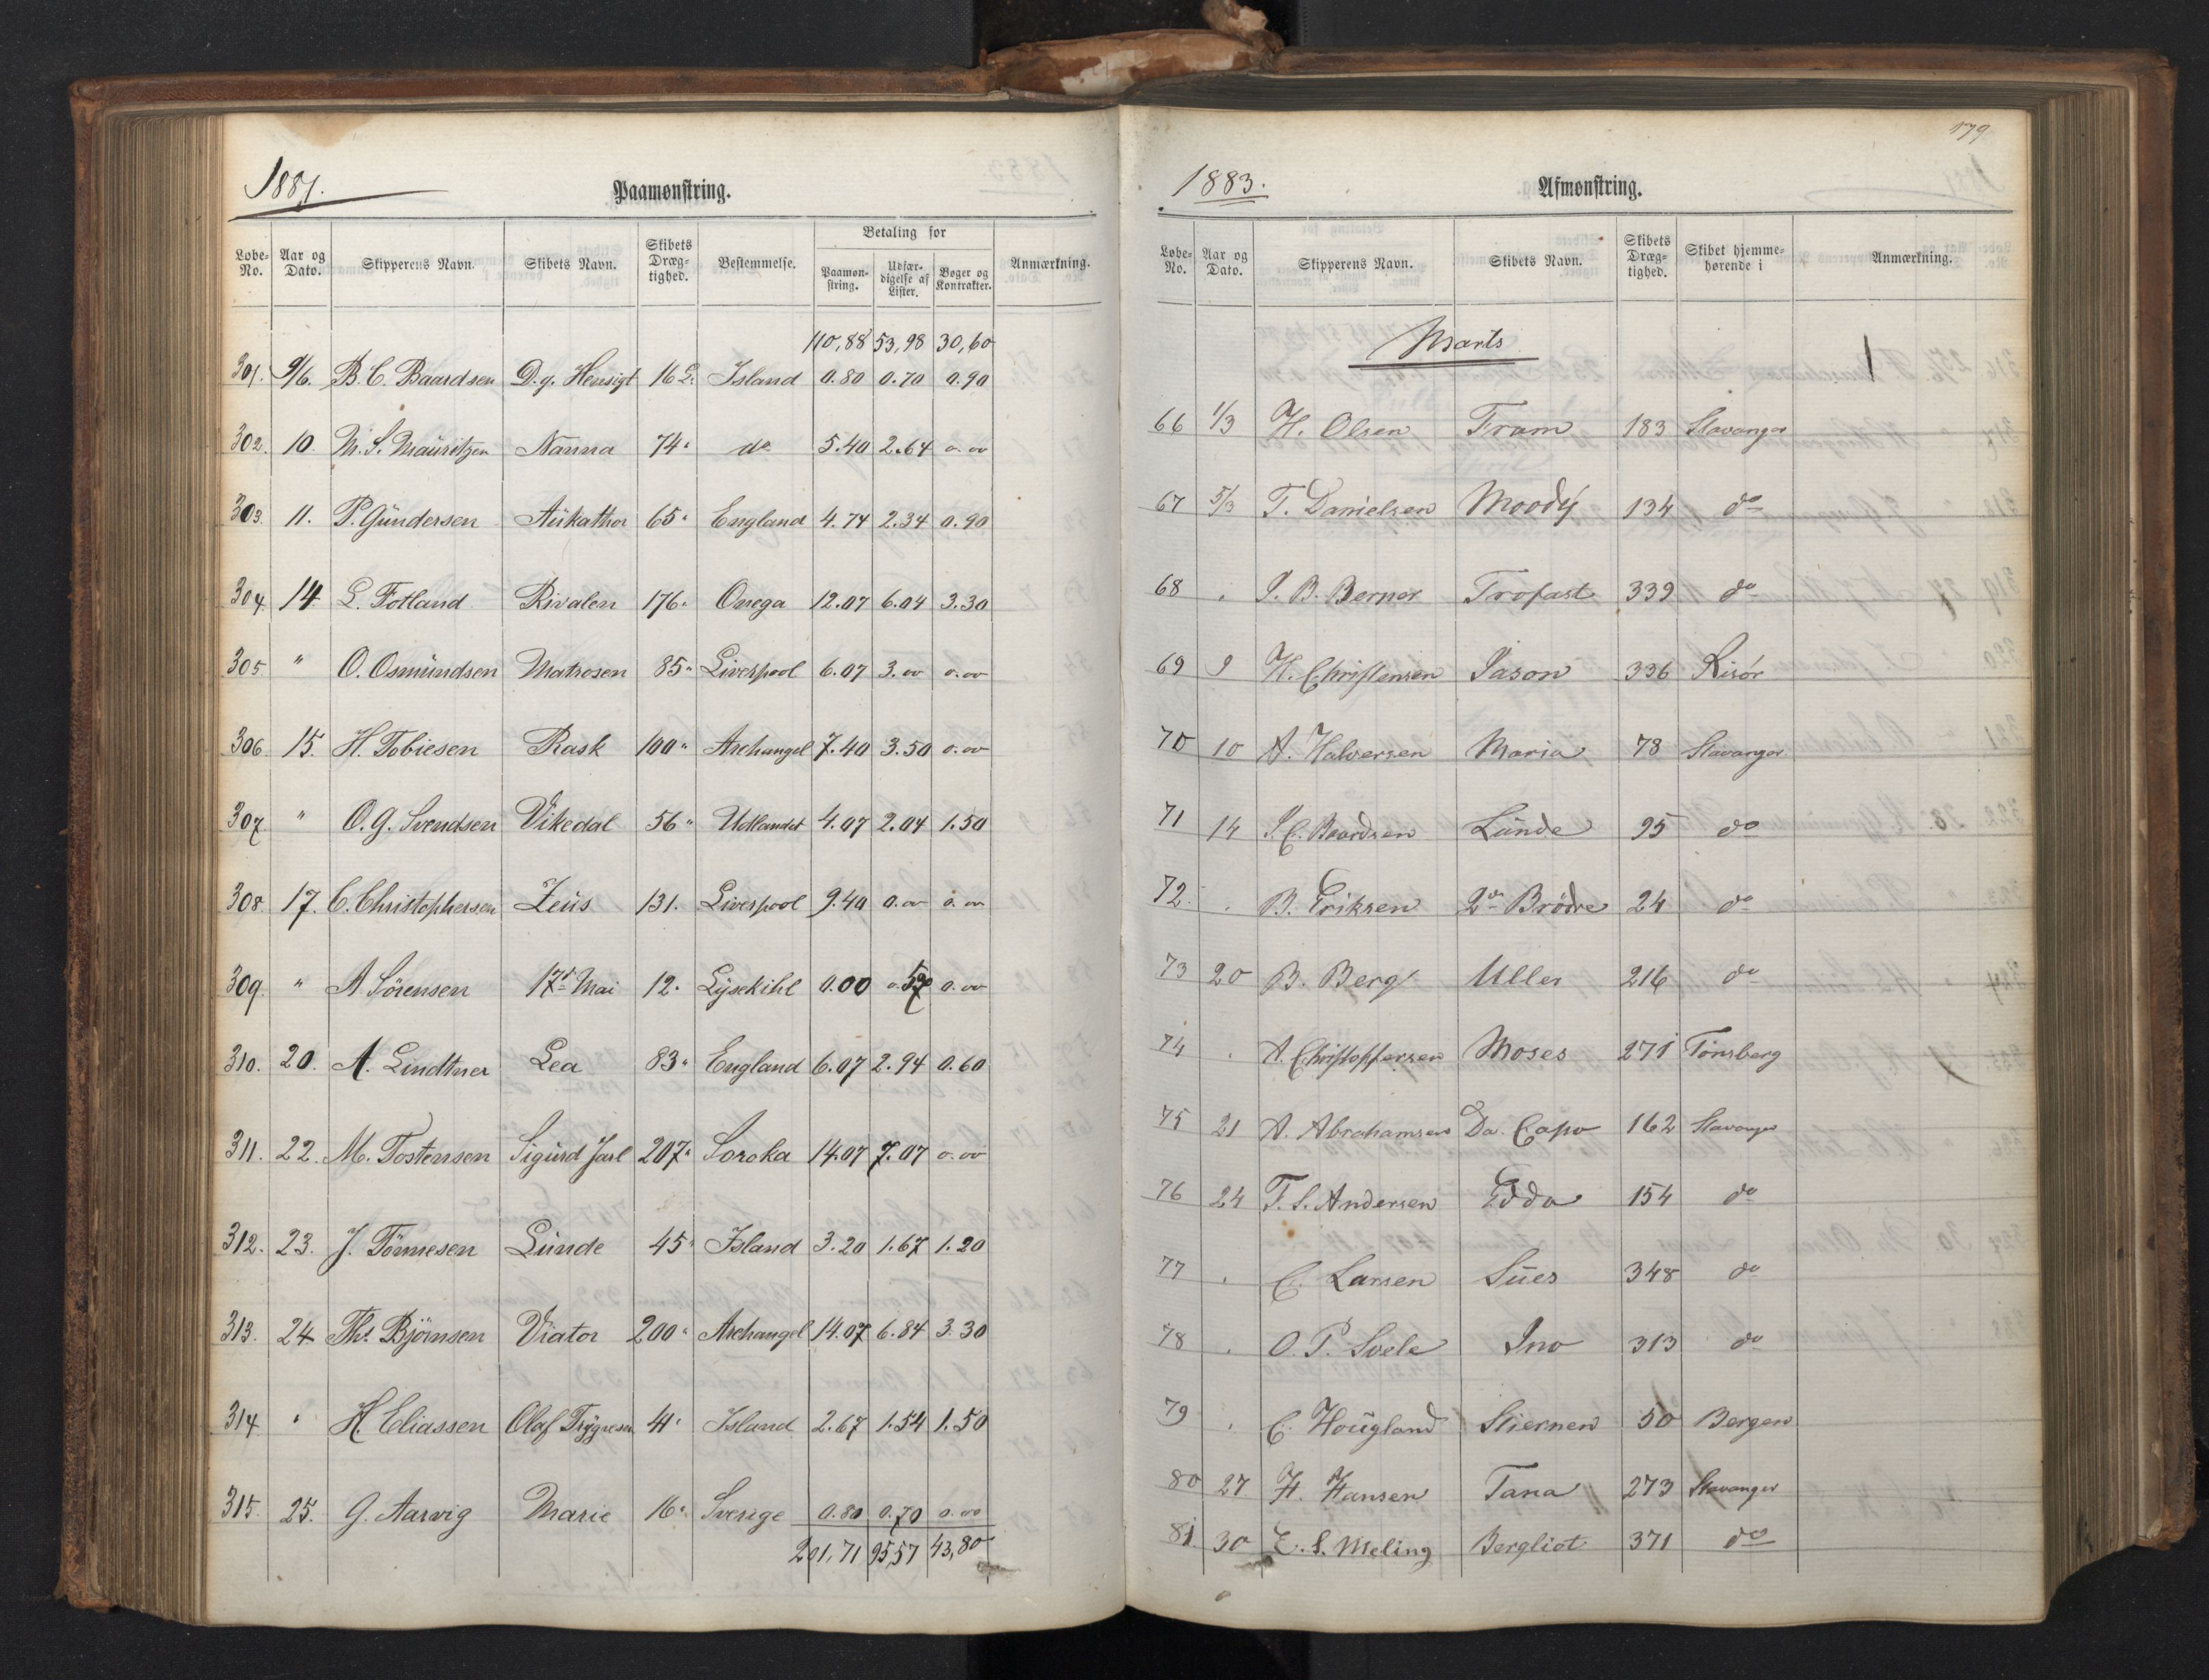 1881.
Paamønstring.
Løbe-No. Aar og Dato. Skipperens Navn. Skibets Navn. Skibets Dræg-tighed. Bestemmelse. Betaling for Paamøn-string. Udfær-digelse af Lister. Bøger og Kontrakter. Anmærkning.
110,88 53,98 30,60
301. 9/6. B. C. Baardsen D. g. Hensigt 16 Island 0.80 0.70 0.90
302. 10. M. S. Mauritzen Nanna 74 do 5.40 2.64 0.00
303. 11. P. Gundersen Aukathor 65 England 4.74 2.34 0.90
304. 14 L. Fotland Rivalen 176 Onega 12.07 6.04 3.30
305 " O. Osmundsen Matrosen 85 Liverpool 6.07 3.00 0.00
306. 15. H. Tobiesen Rask 100 Archangel 7.40 3.50 0.00
307 " O. G. Svendsen Vikedal 56 Udlandet 4.07 2.04 1.50
308 17. C. Christophersen Zeus 131. Liverpool 9.40 0.00 0.00
309. " A. Sörensen 17de Mai 12. Lysekihl 0.00 0.00
310. 20. A. Lindtner Lea 83 England 6.07 2.94 0.60
311. 22. M. Tostensen Sigurd Jarl 207 Soroka 14.07 7.07 0.00
312. 23. J. Tönnesen Lunde 45 Island 3.20 1.67 1.20
313. 24. Ths. Björnsen Viator 200 Archangel 14.07 6.84 3.30
314 " H. Eliassen Olaf Trygvesen 41 Island 2.67 1.54 1.50
315. 25. G. Aarvig Marie 16 Sverige 0.80 0.70 0.00
201,71 95,57 43,80
179
1883.
Afmønstring.
Løbe-No. Aar og Dato. Skipperens Navn. Skibets Navn. Skibets Dræg-tighed. Skibet hjemme-hørende i Anmærkning.
Marts
66 1/3 H. Olsen Fram 183 Stavanger
67 5/3 T. Danielsen Moody 134 do
68 . J. B. Berner Trofast 339 do
69 9 H. Christensen Jason 336 Risör
70 10 A. Halversen Maria 78 Stavanger
71 14 J. C. Baardsen Lunde 95 do
72. . B. Eriksen 2de Brödre 24 do
73 20 B. Berg Uller 216 do
74 . A. Christoffersen Moses 271 Tönsberg
75 21 A. Abrahamsen Da Capo 162 Stavanger
76 24 T. S. Andersen Edda 154 do
77 . C. Larsen Sues 348 do
78 . O. P. Svele Ino 313 do
79 . C. Hougland Stiernen 50 Bergen
80 27 H. Hansen Tana 273 Stavanger
81. 30 E. S. Meling Bergliot 371 do